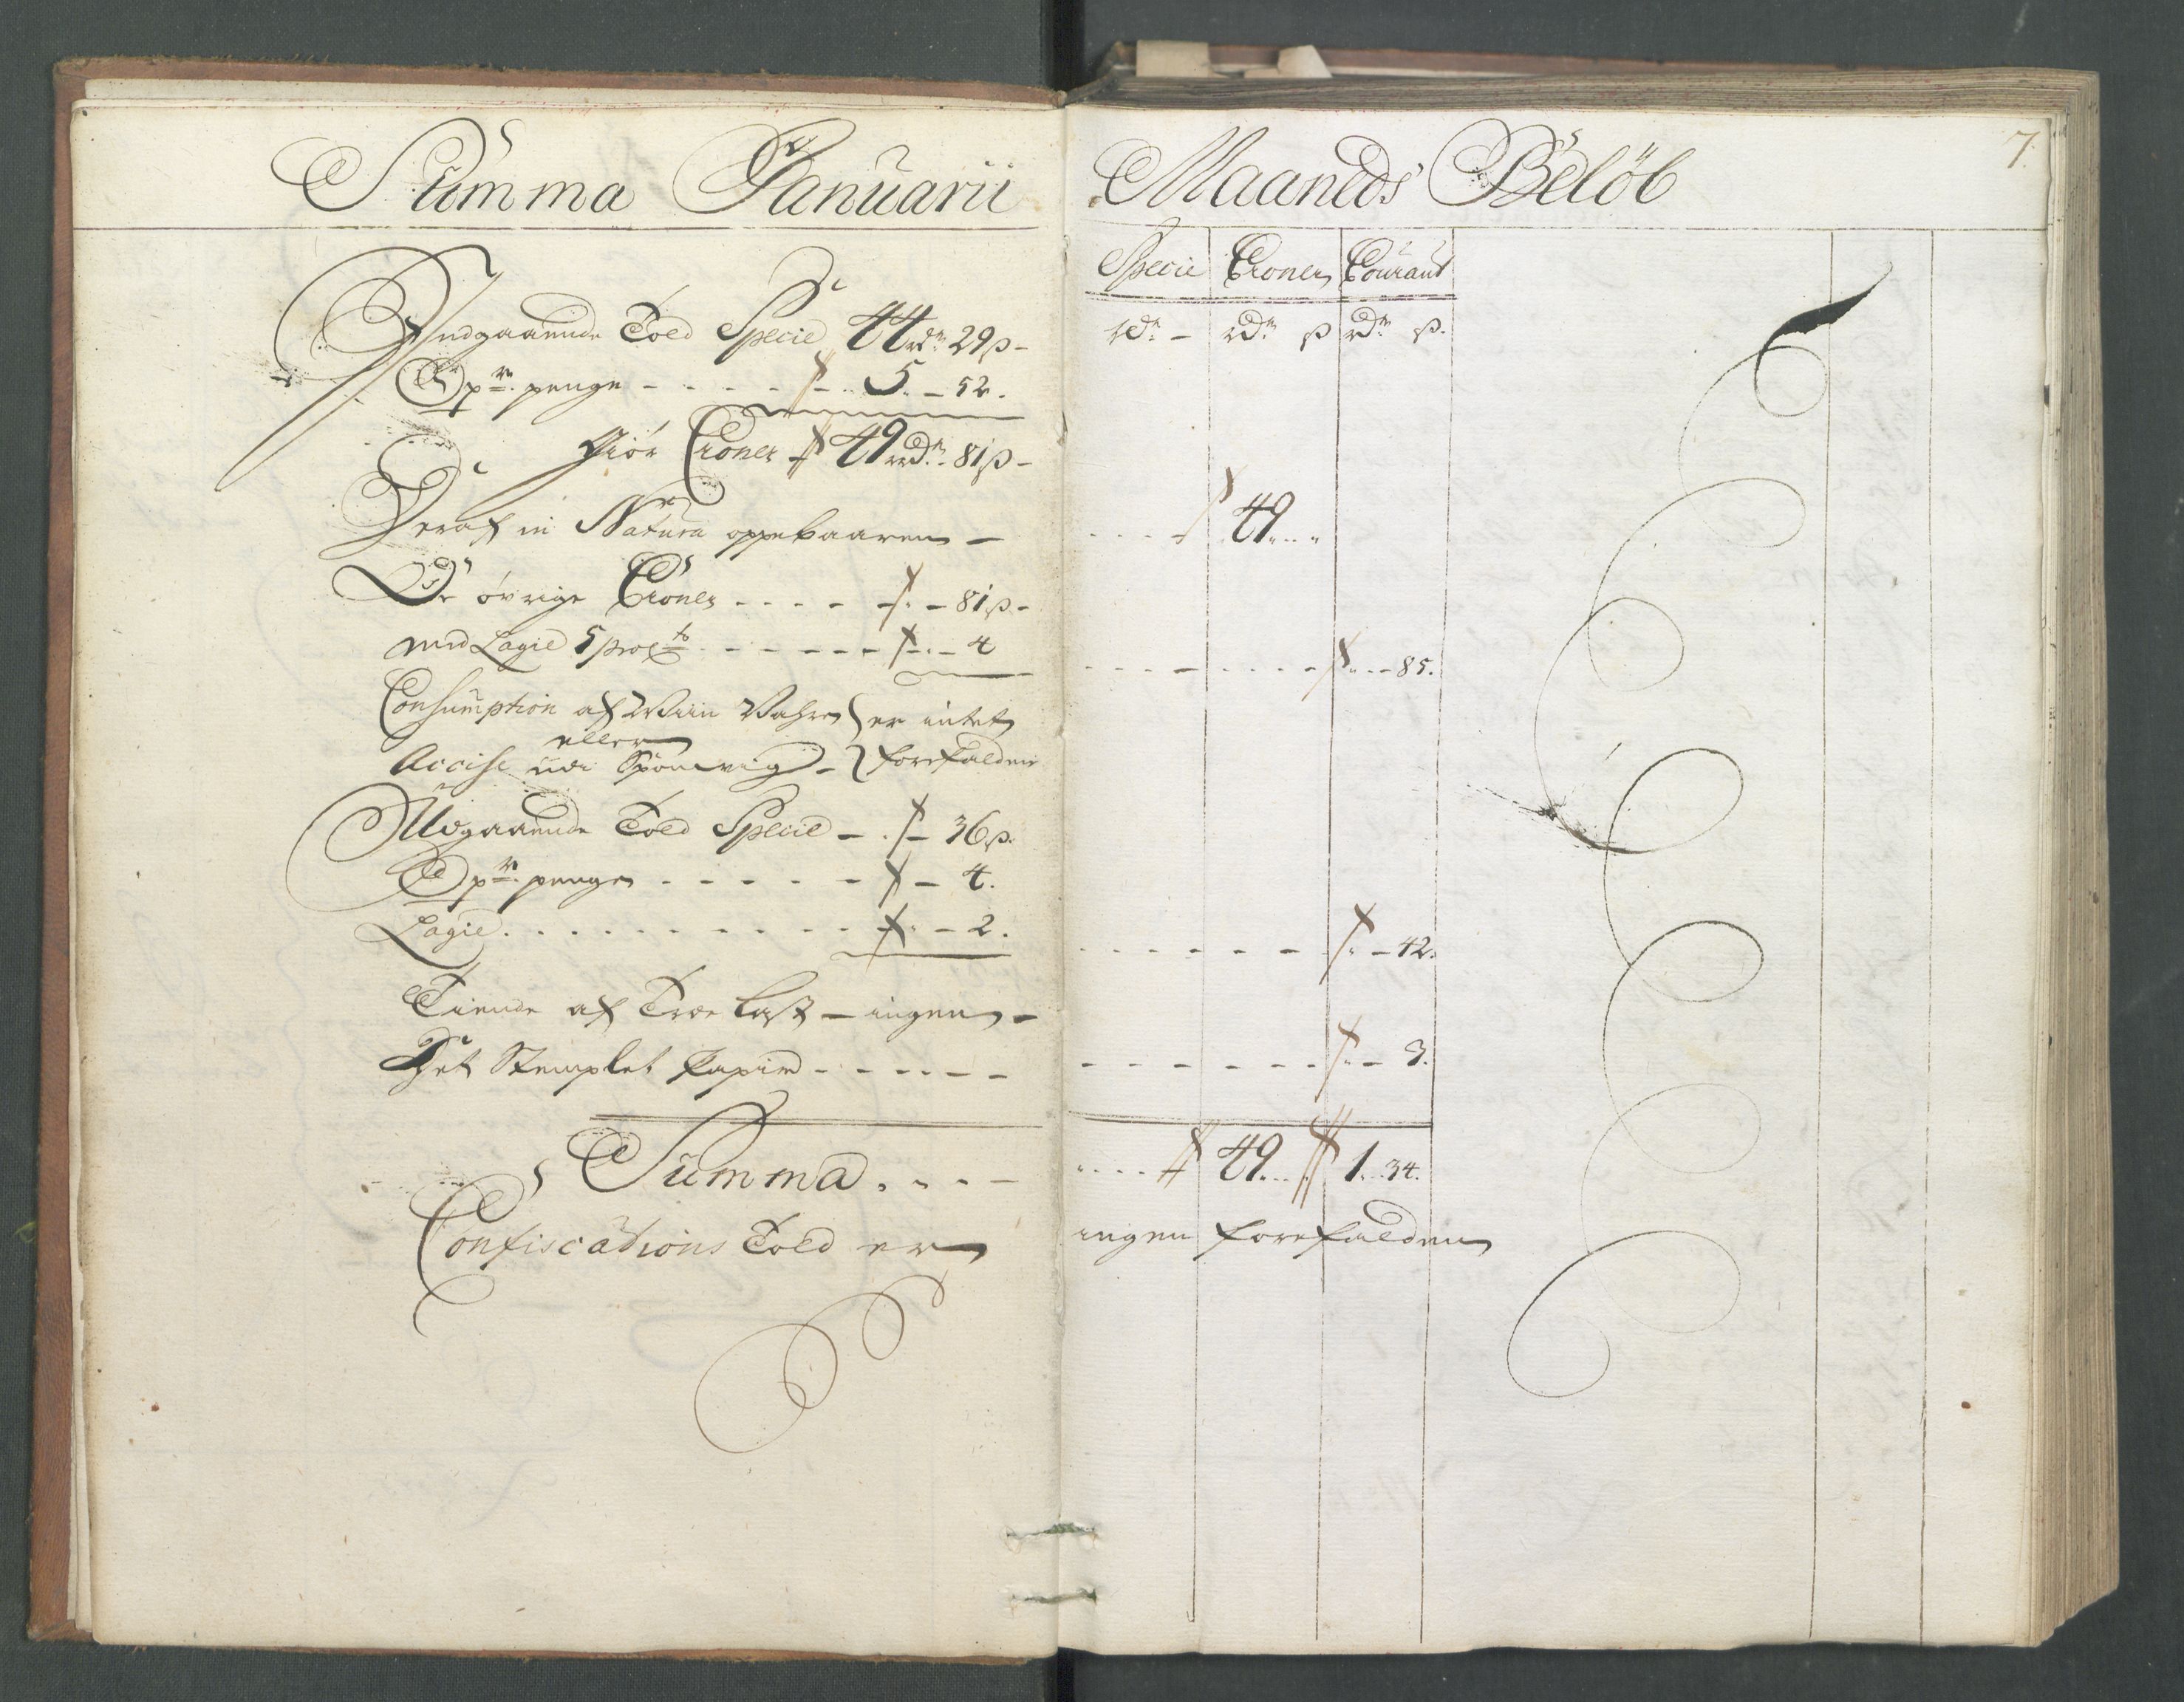 Summa Januarii Maaneds Beløb
7.
Specie Croner Courant
rdr - rdr ß rdr ß.
Indgaaende Told Specie 44 rdr 29 ß -
Opr. penge - - - - - 5. - 52.
Giør Croner 49 rdr 81 ß -
Deraf in Natura oppebaaren - - - - - 49. . . .
De øvrige Croner - - - - - 81 ß -
med Lagie 5 procto - - - - - - - 4 - - - - - - - 85.
Consumption af Wiin Vahre } er intet
eller
Accise udi Sponevig - } forefalden
Udgaaende Told Specie - . - 36 ß.
Opr. penge - - - - - - 4.
Lagie. . . . . . . . . . . - 2. - - - - - - - 42.
Tiende af Træ last - ingen -
Det Stemplet Papir - - - - - - - - - - - - - 3.
Summa . . . . - . . . . 49. . . . 1. . 34.
Confiscations Told er ingen forefalden